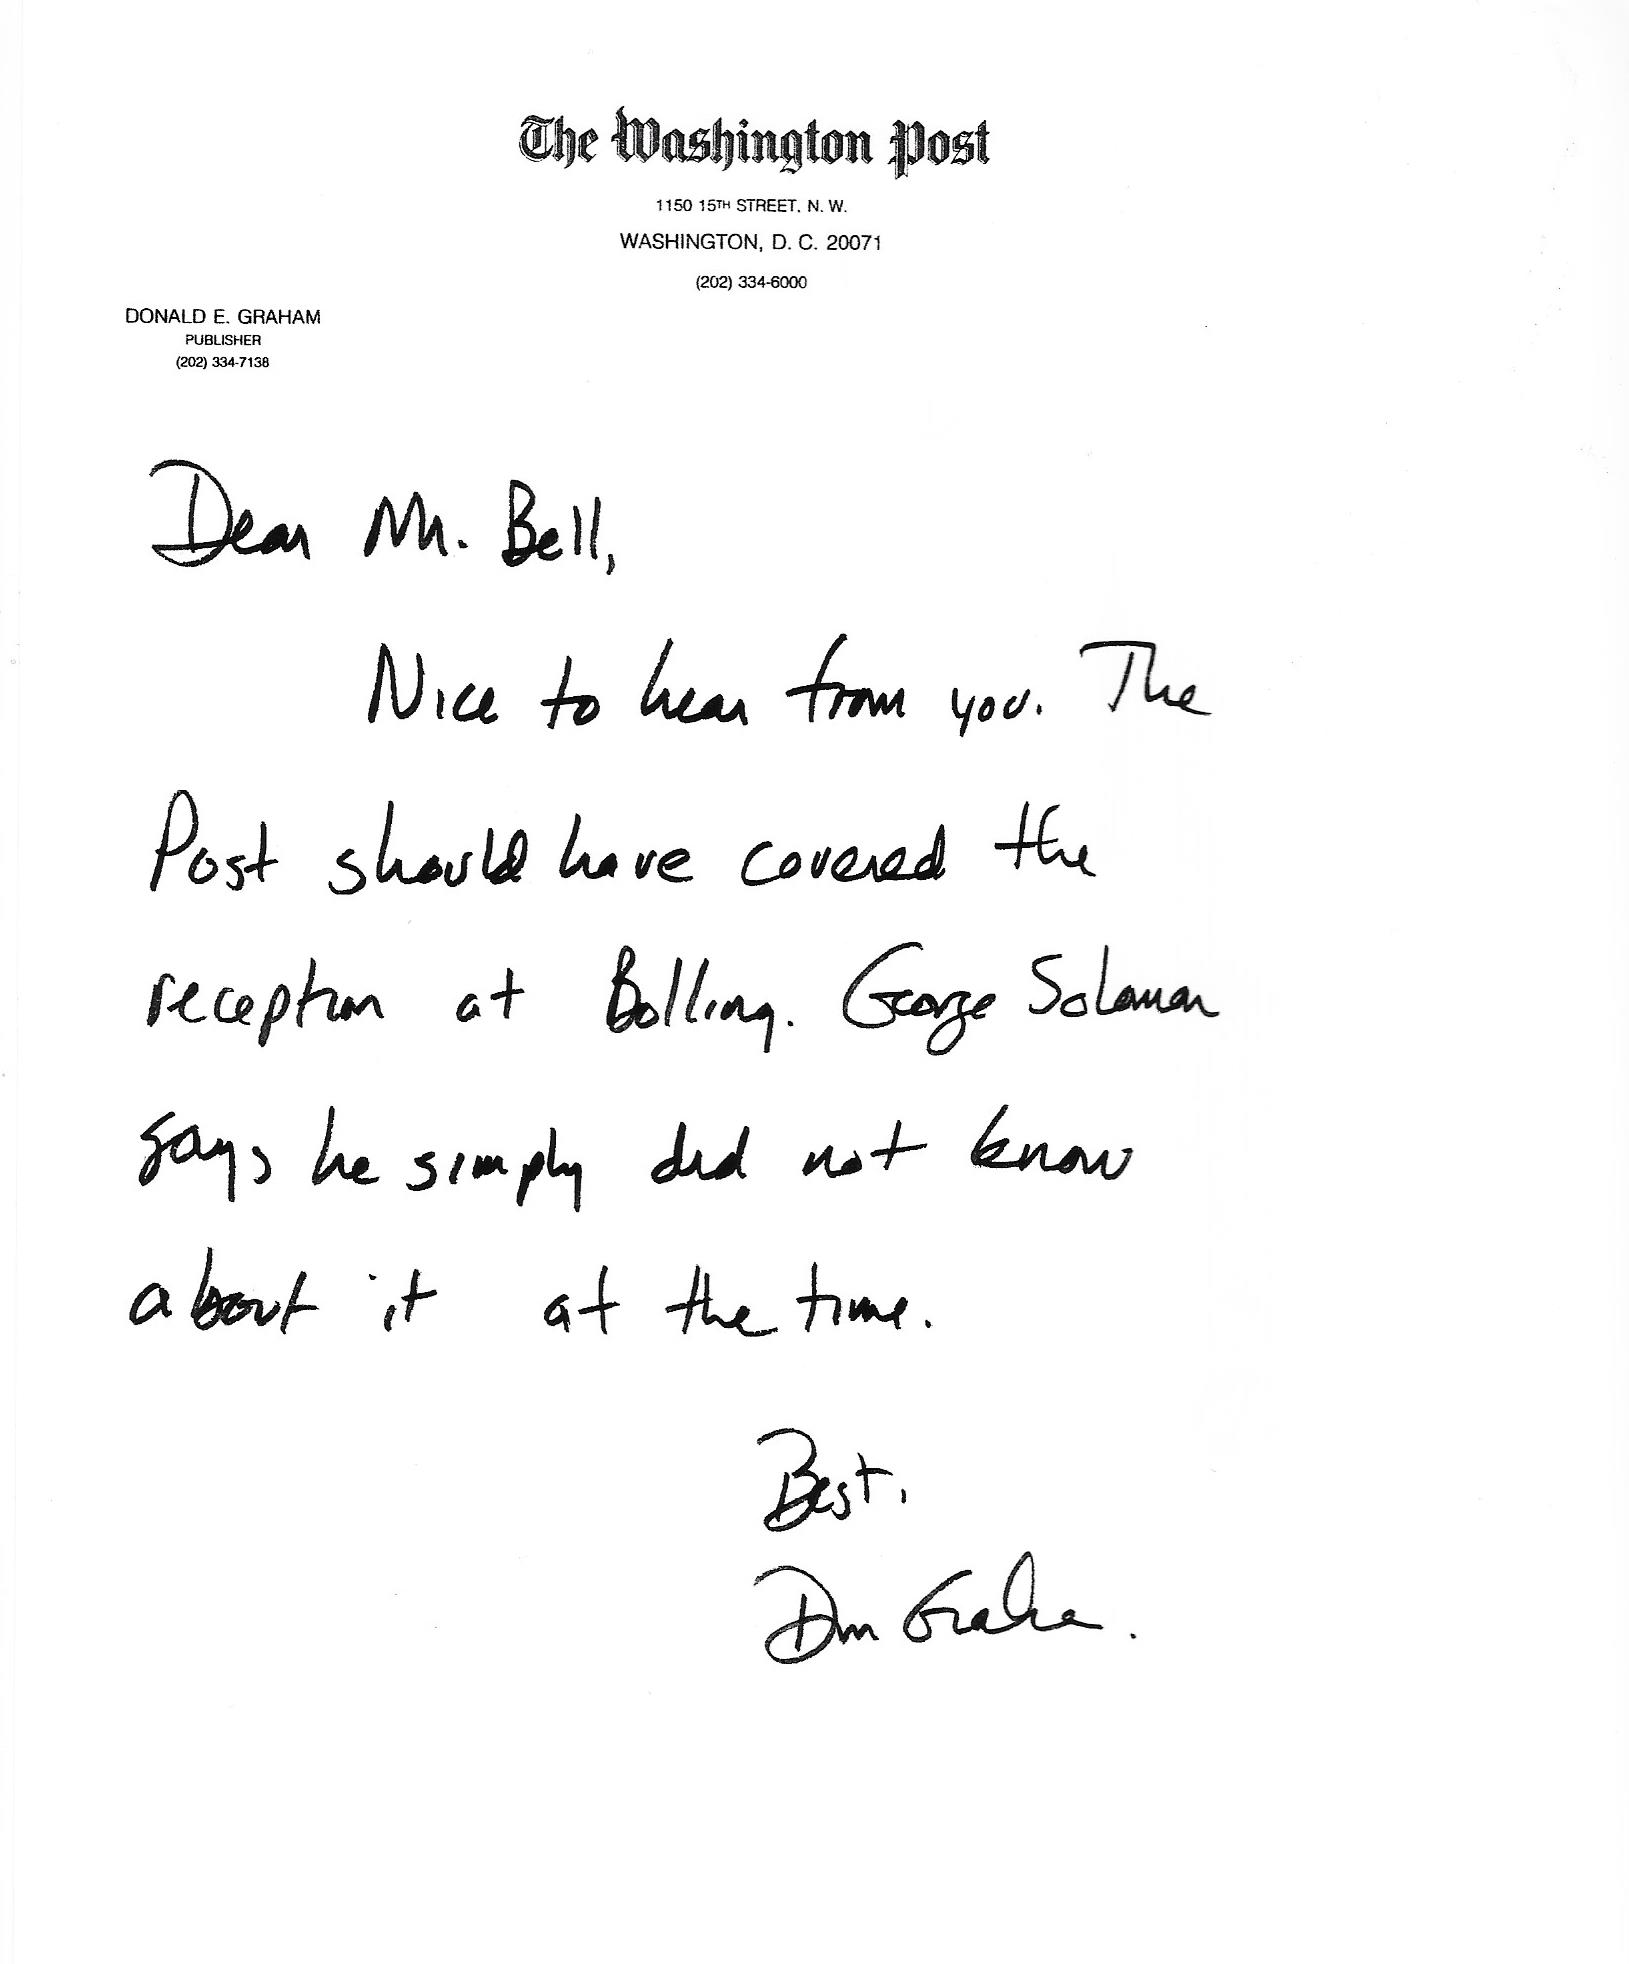 The Washington Post
1150 15TH STREET, N. W.
WASHINGTON, D. C. 20071
(202) 334-6000
DONALD E. GRAHAM
PUBLISHER
(202) 334-7138
Dear Mr. Bell,
Nice to hear from you. The
Post should have covered the
reception at Bolling. George Solomon
says he simply did not know
about it at the time.
Best,
Don Graham.